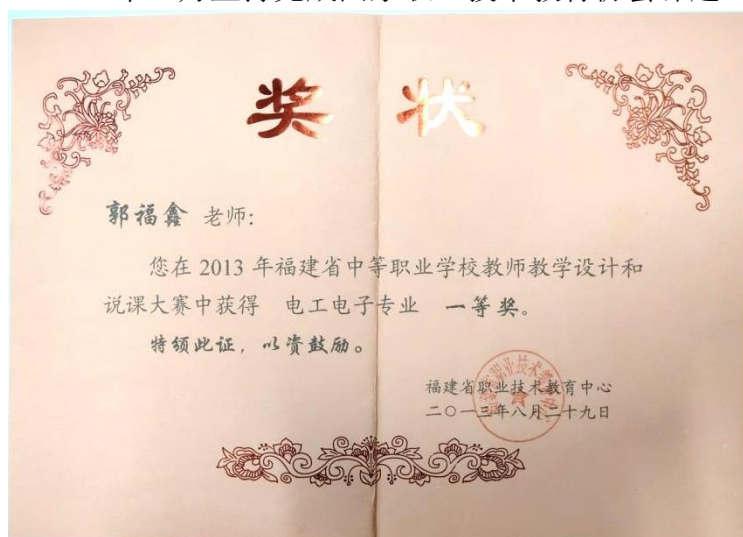 奖 状
郭福鑫 老师:
您在 2013 年福建省中等职业学校教师教学设计和
说课大赛中获得 电工电子专业 一等奖。
特颁此证，以资鼓励。
福建省职业技术教育中心
二〇一三年八月二十九日